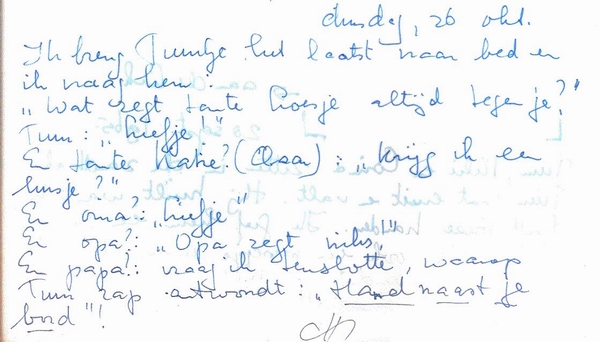 dinsdag, 26 okt.
Ik breng Tuuntje het laatst naar bed en
ik vraag hem:
„Wat zegt tante Loesje altijd tegen je?"
Tuun: „liefje!"
En tante Katie? (Olsar): „krijg ik een
kusje?"
En oma?: „liefje"
En opa?: „Opa zegt niks!"
En papa?: vraag ik tenslotte, waarop
Tuun rap antwoordt: „Hand naast je
bord"!